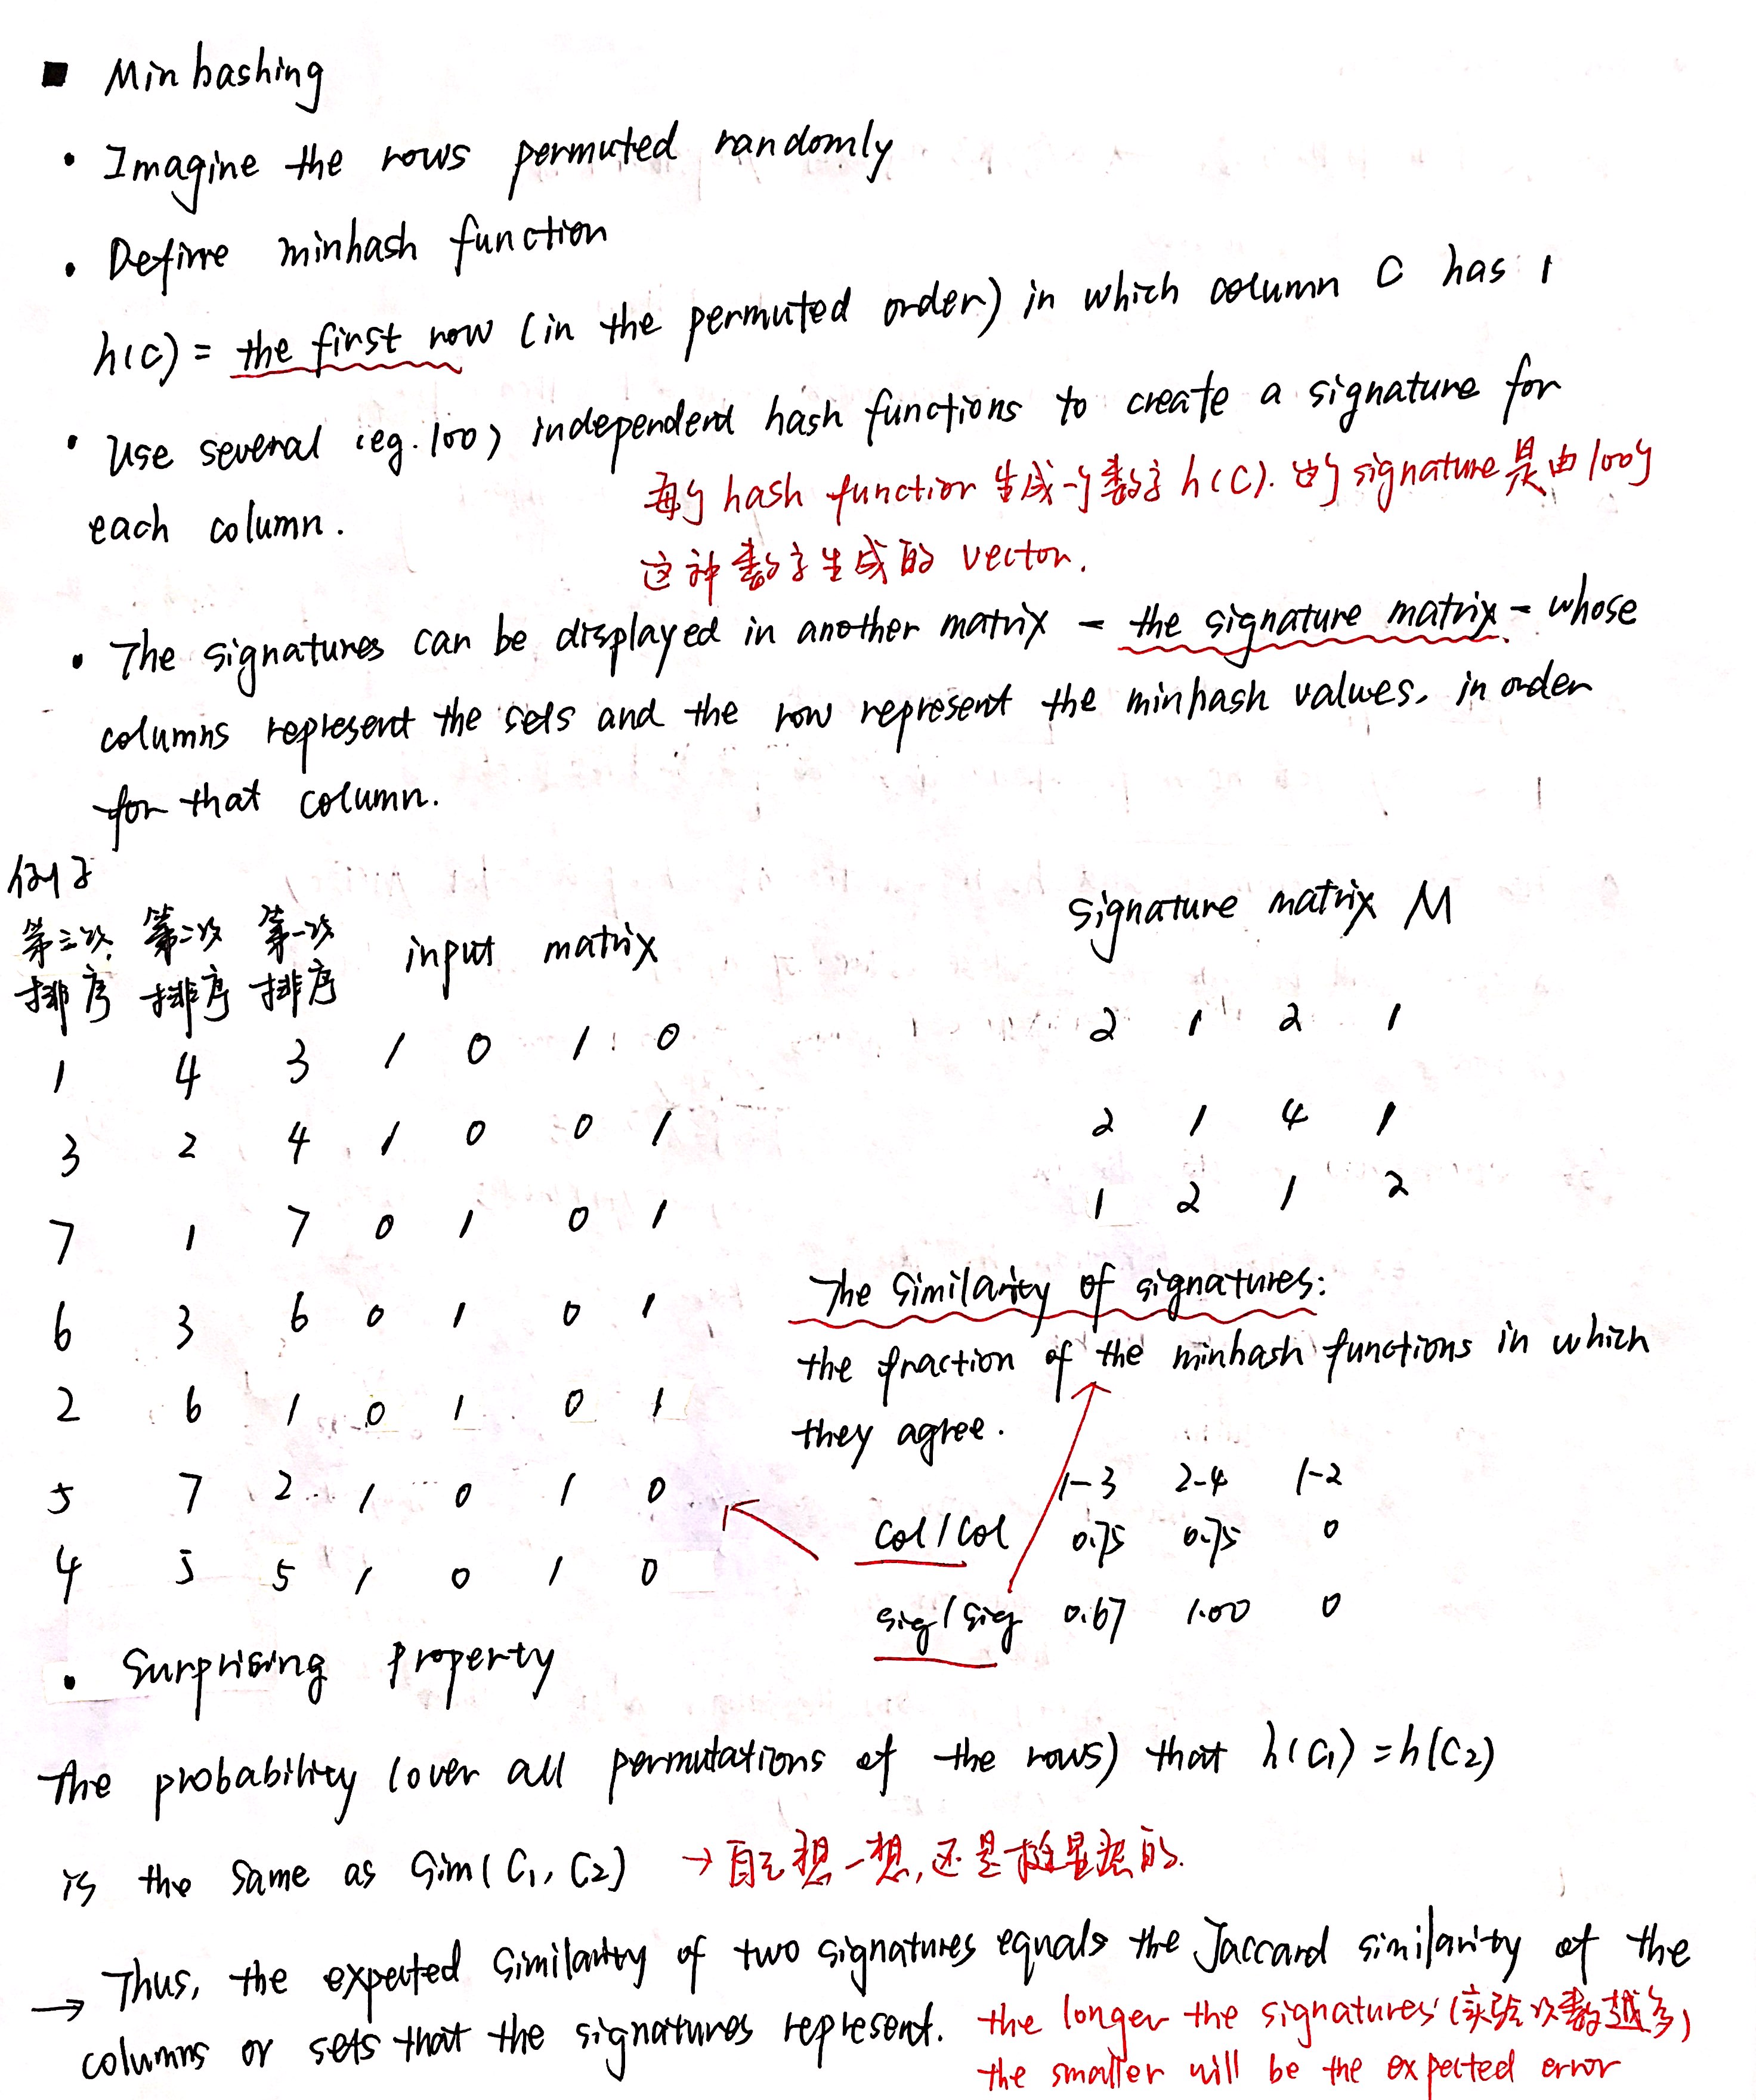 ■ Minhashing
• Imagine the rows permuted randomly
• Define minhash function
h(C) = the first row (in the permuted order) in which column C has 1
• Use several (eg. 100) independent hash functions to create a signature for
each column.
每个 hash function 生成一个数字 h(C). 这个 signature 是由 100个
这种数字生成的 vector.
• The signatures can be displayed in another matrix – the signature matrix – whose
columns represent the sets and the row represent the minhash values, in order
for that column.
例子
第三次 第二次 第一次 input matrix
排序 排序 排序
1 4 3 1 0 1 0
3 2 4 1 0 0 1
7 1 7 0 1 0 1
6 3 6 0 1 0 1
2 6 1 0 1 0 1
5 7 2 1 0 1 0
4 5 5 1 0 1 0
signature matrix M
2 1 2 1
2 1 4 1
1 2 1 2
The similarity of signatures:
the fraction of the minhash functions in which
they agree.
1-3 2-4 1-2
Col/Col 0.75 0.75 0
Sig/Sig 0.67 1.00 0
• Surprising Property
The probability (over all permutations of the rows) that h(C1) = h(C2)
is the same as Sim(C1, C2) → 自己想一想,还是挺显然的.
→ Thus, the expected similarity of two signatures equals the Jaccard similarity of the
columns or sets that the signatures represent. the longer the signatures (实验次数越多)
the smaller will be the expected error